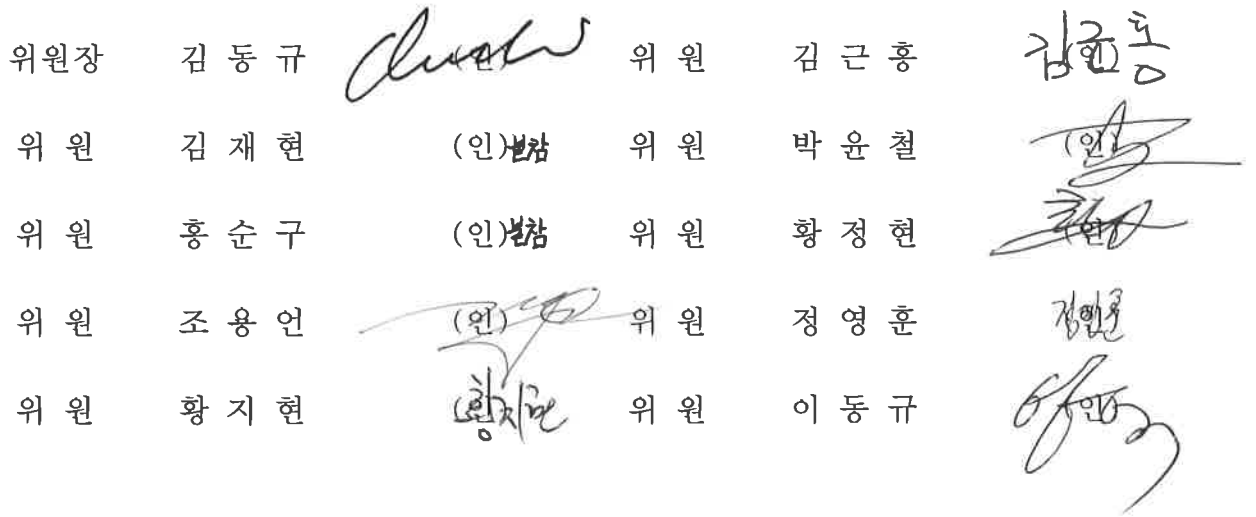 위원장 김 동 규 (인) 위 원 김 근 홍 (인) 김근홍
위 원 김 재 현 (인)불참 위 원 박 윤 철 (인)
위 원 홍 순 구 (인)불참 위 원 황 정 현 (인)
위 원 조 용 언 (인) 위 원 정 영 훈 (인) 정영훈
위 원 황 지 현 (인) 황지현 위 원 이 동 규 (인)